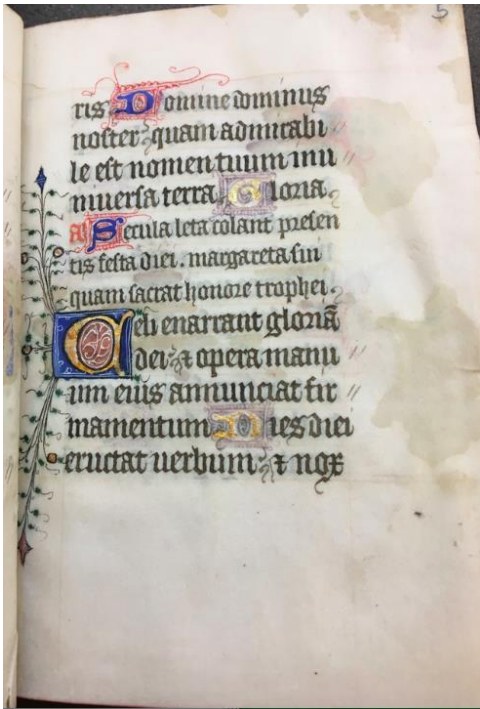 5
ris Domine dominus
noster quam admirabi
le est nomen tuum inu
niuersa terra Gloria.
a Secula leta colant presen
tis festa diei. margareta sui
quam sacrat honore trophei.
Celi enarrant gloriā
dei: et opera manu
um eius annunciat fir
mamentum Dies diei
eructat uerbum: et nox